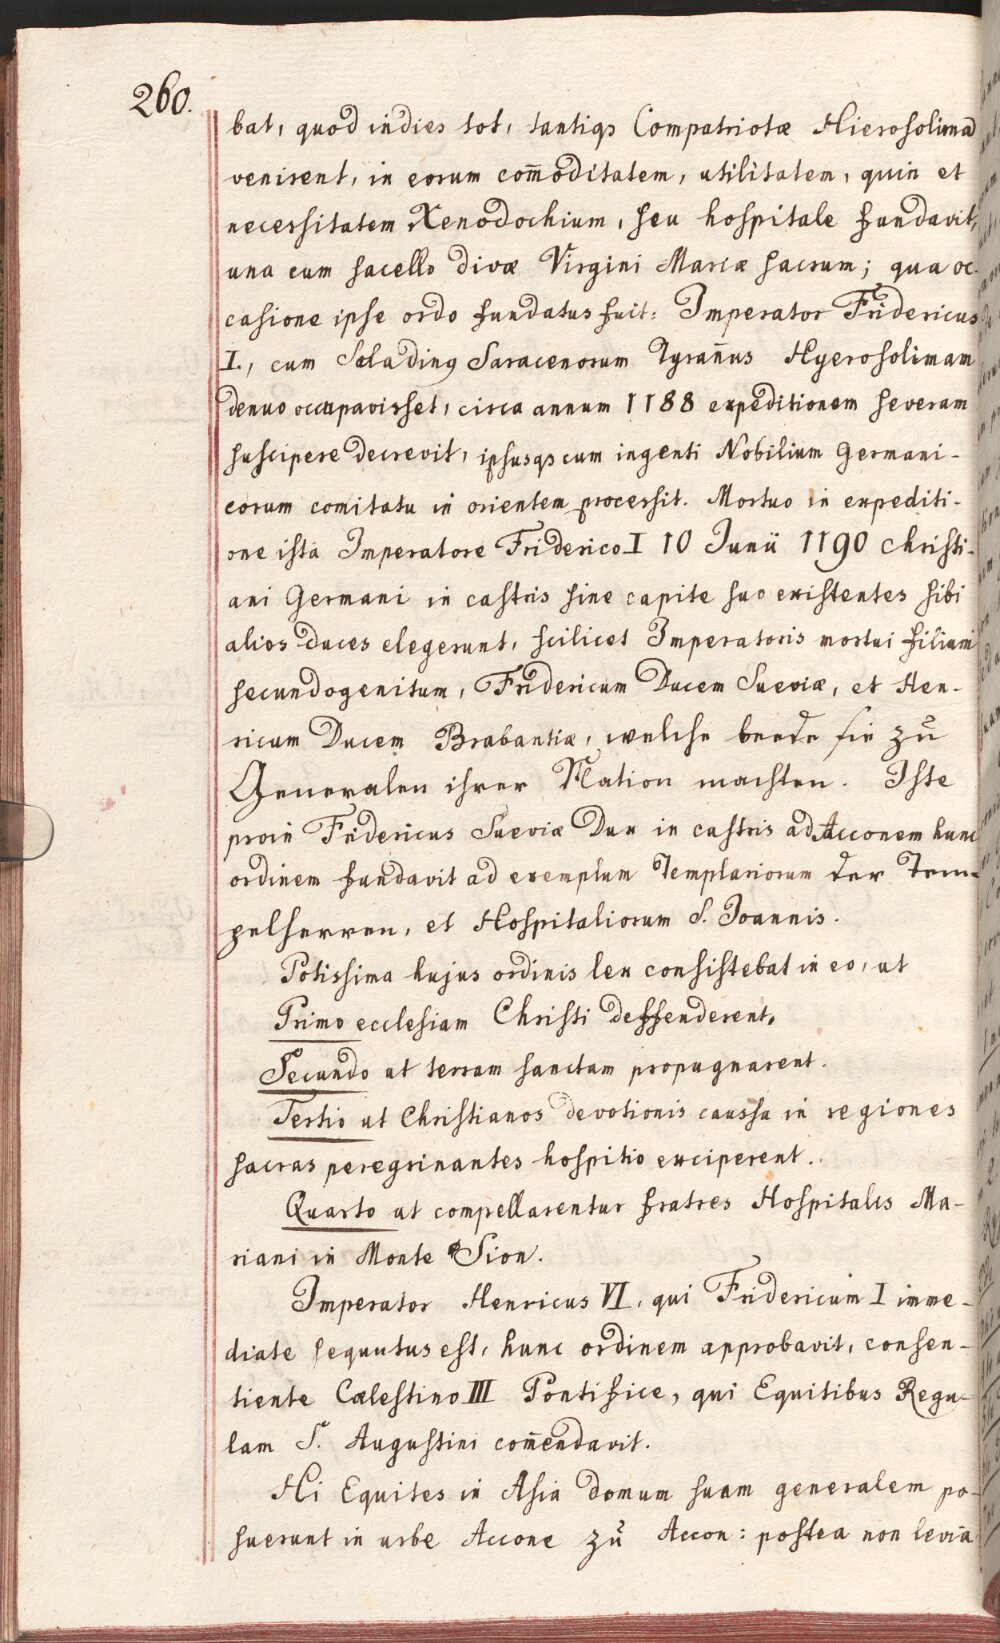 260.
bat, quod indies tot, tantiqs Compatriotæ Hierosolimā
venirent, in eorum com̄oditatem, utilitatem, quin et
necessitatem Xenodochium, seu hospitale fundavit,
una cum sacello divæ Virgini Mariæ sacrum; qua oc-
casione ipse ordo fundatus fuit: Imperator Fridericus
I., cum Saladinus Saracenorum Tyran̄us Hyerosolimam
denuo occupavisset, circa annum 1188 expeditionem severam
suscipere decrevit, ipsusqs cum ingenti Nobilium Germani-
corum comitatu in orientem processit. Mortuo in expediti-
one ista Imperatore Friderico I 10 Junii 1190 Christi-
ani Germani in castris sine capite suo existentes sibi
alios duces elegerunt, scilicet Imperatoris mortui filium
secundogenitum, Fridericum Ducem Sueviæ, et Hen-
ricum Ducem Brabantiæ, welche beede sie zu
Generalen ihrer Nation machten. Iste
proin Fridericus Sueviæ Dux in castris ad Acconem hunc
ordinem fundavit ad exemplum Templariorum der Tem-
pelherren, et Hospitaliorum S. Joannis.
Potissima hujus ordinis lex consistebat in eo, ut
Primo ecclesiam Christi deffenderent,
Secundo ut terram sanctam propugnarent.
Tertio ut Christianos devotionis caussa in regiones
sacras peregrinantes hospitio exciperent.
Quarto ut compellarentur fratres Hospitalis Ma-
riani in Monte Sion.
Imperator Henricus VI, qui Fridericum I imme-
diate sequutus est, hunc ordinem approbavit, consen-
tiente Cælestino III Pontifice, qui Equitibus Regu-
lam S. Augustini com̄endavit.
Hi Equites in Asia domum suam generalem po-
suerunt in urbe Accone zu Accon: postea non levia